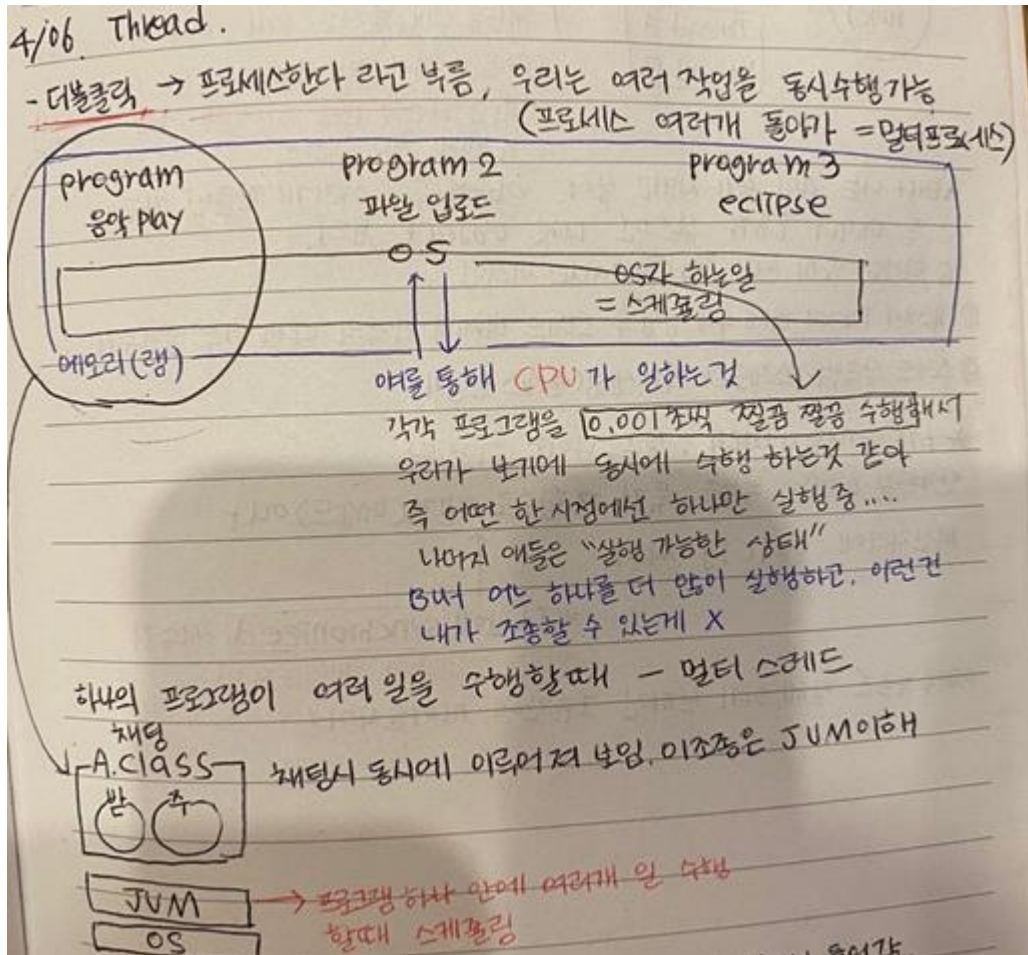 4/06. Thread.
- 더블클릭 → 프로세스한다 라고 부름, 우리는 여러 작업을 동시수행가능
(프로세스 여러개 돌아가 = 멀티프로세스)
program
음악 play
program 2
파일 업로드
program 3
eclipse
OS
OS가 하는일
= 스케쥴링
메모리(램)
얘를 통해 CPU가 일하는것
각각 프로그램을 0.001초씩 찔끔 찔끔 수행해서
우리가 보기에 동시에 수행 하는것 같아
즉 어떤 한 시점에선 하나만 실행중....
나머지 애들은 "실행 가능한 상태"
But 어느 하나를 더 많이 실행하고, 이런건
내가 조종할 수 있는게 X
하나의 프로그램이 여러 일을 수행할때 - 멀티 스레드
채팅
A.class
받 주
채팅시 동시에 이루어져 보임. 이조종은 JVM이해
JVM → 프로그램 하나 안에 여러개 일 수행
할때 스케쥴링
OS